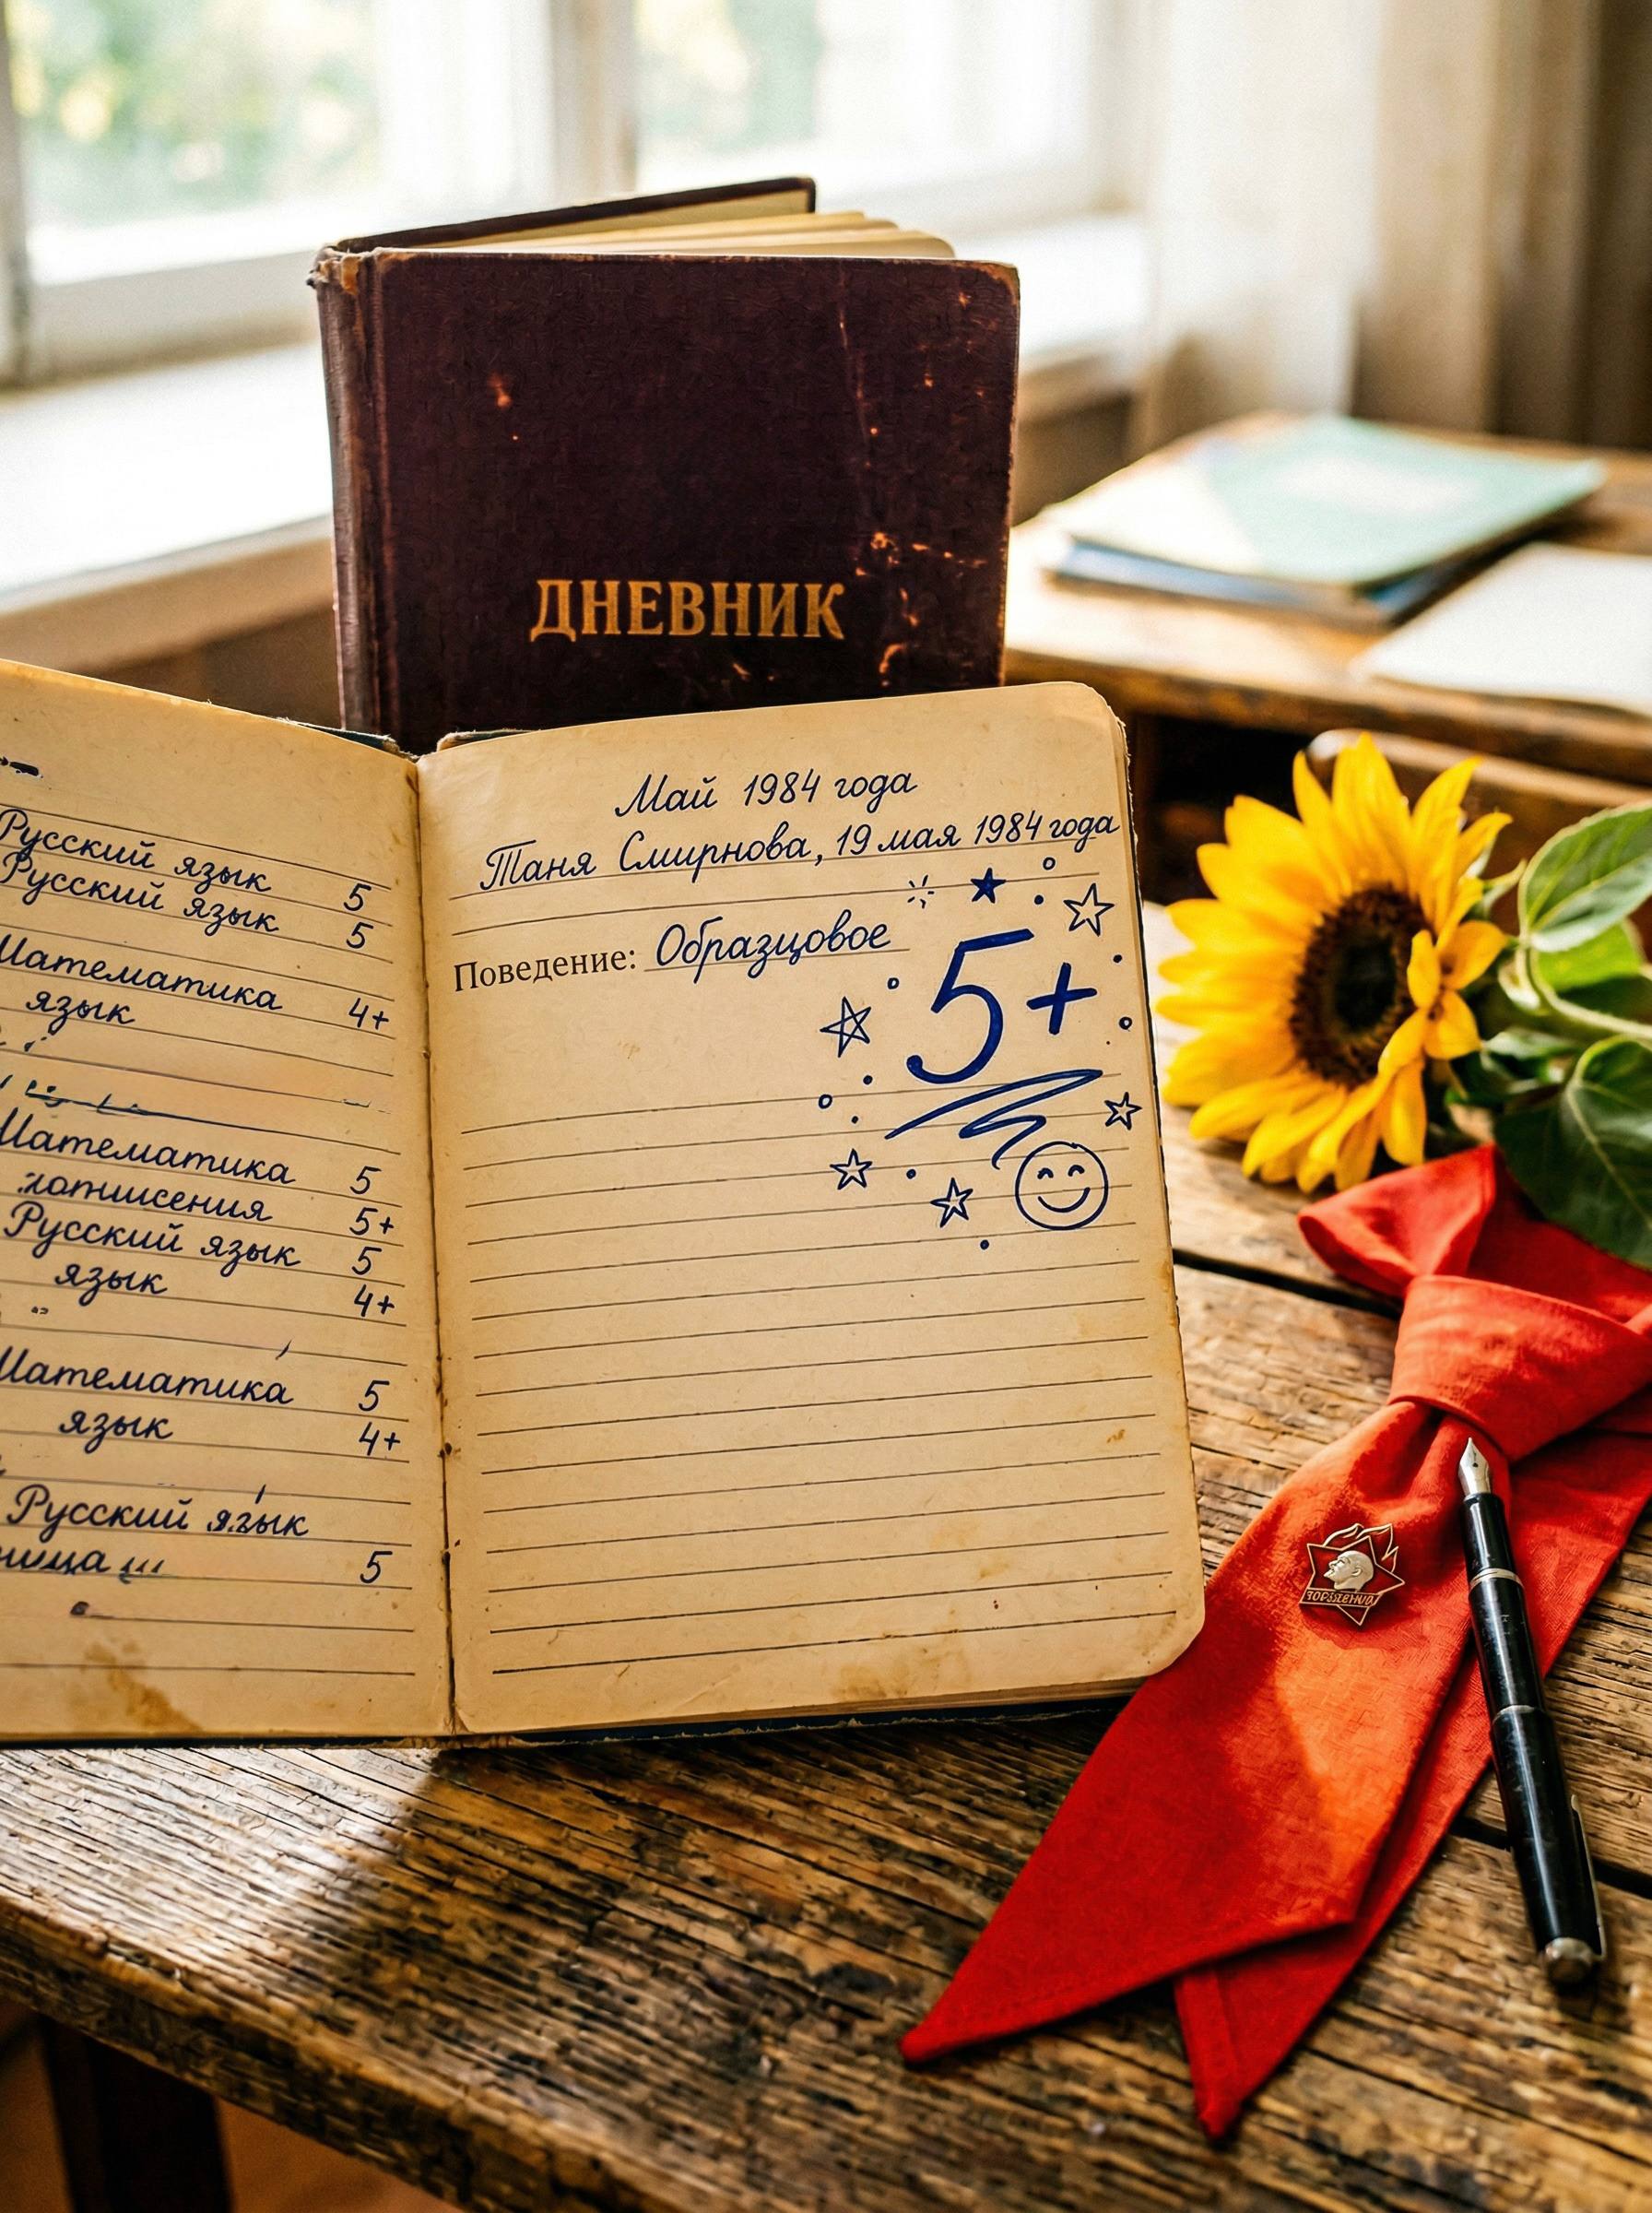 ДНЕВНИК
Русский язык 5
Русский язык 5
Математика 4+
язык
Математика 5
5+
Русский язык 5
язык 4+
Математика 5
язык 4+
Русский язык
5
Май 1984 года
Таня Смирнова, 19 мая 1984 года
Поведение: Образцовое
5+